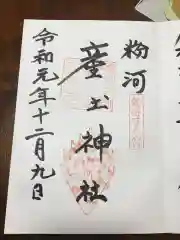 粉河
産土神社
令和元年十二月九日